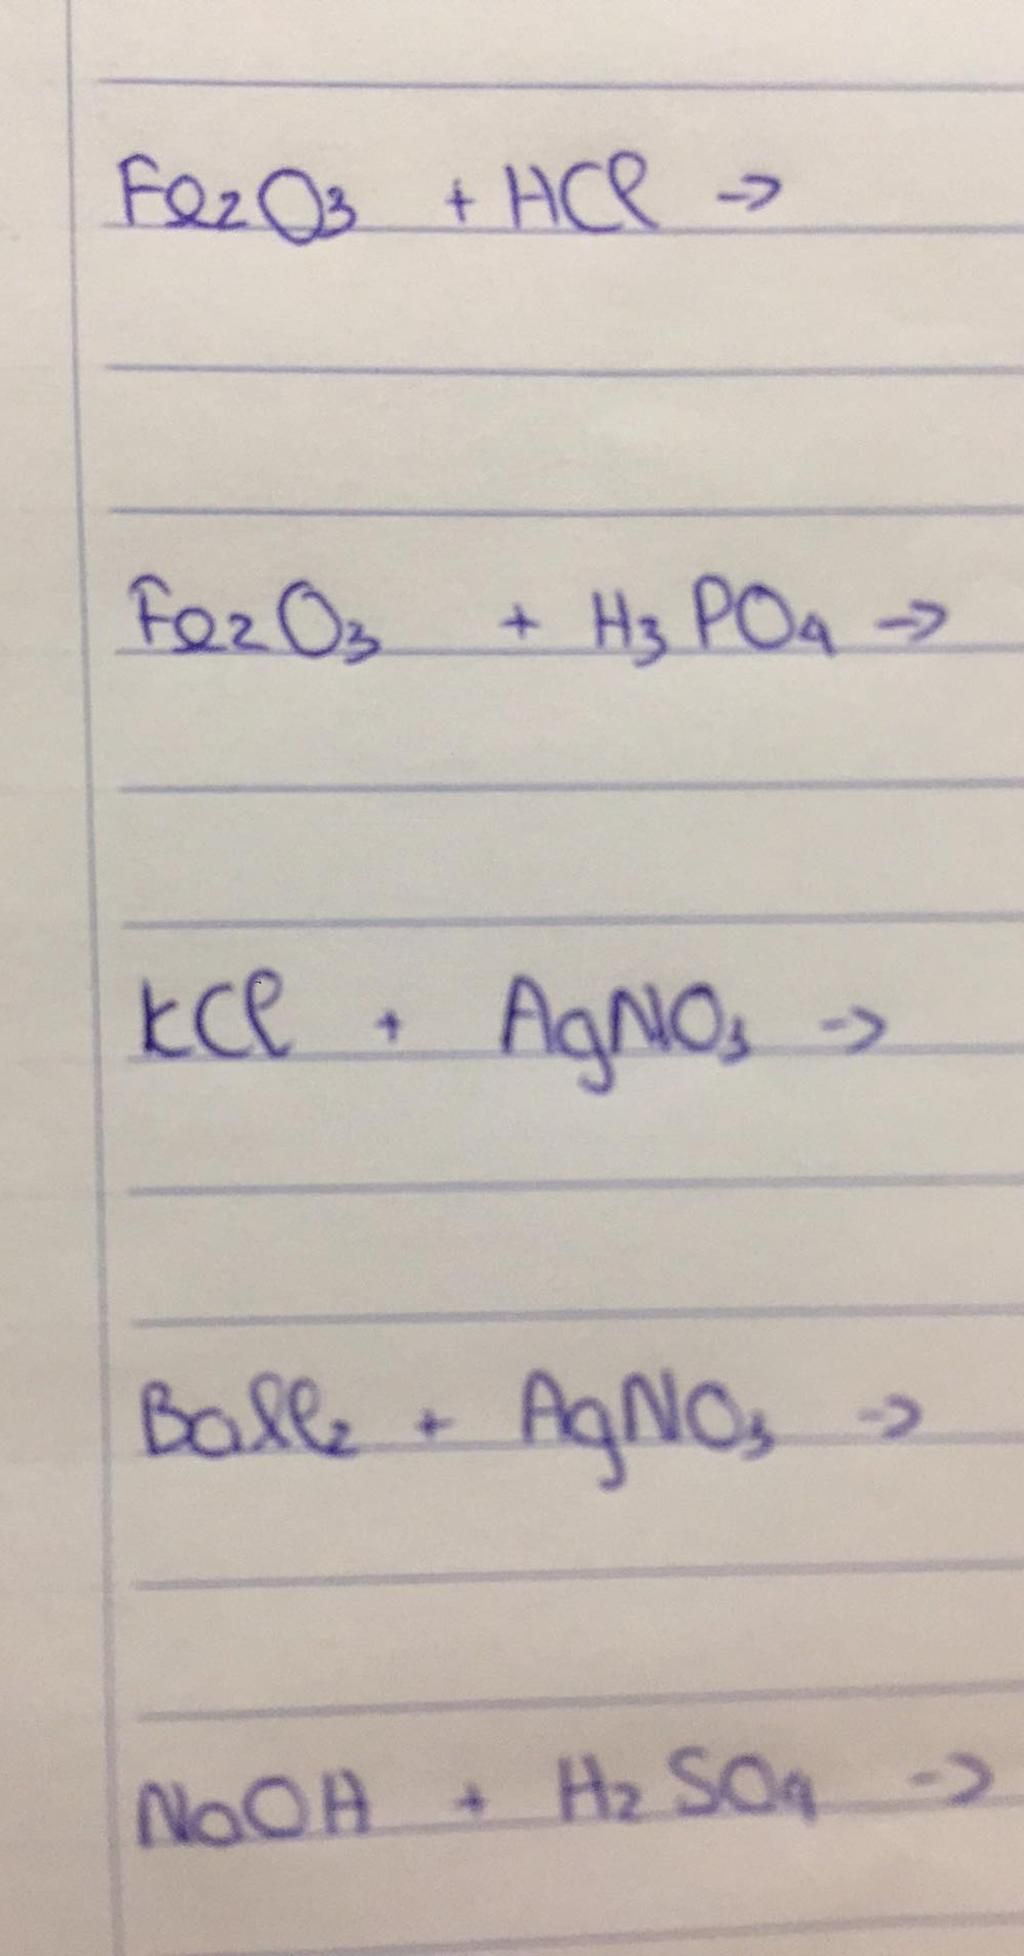 Fe2O3 + HCl →
Fe2O3 + H3PO4 →
KCl + AgNO3 →
BaCl2 + AgNO3 →
NaOH + H2SO4 →